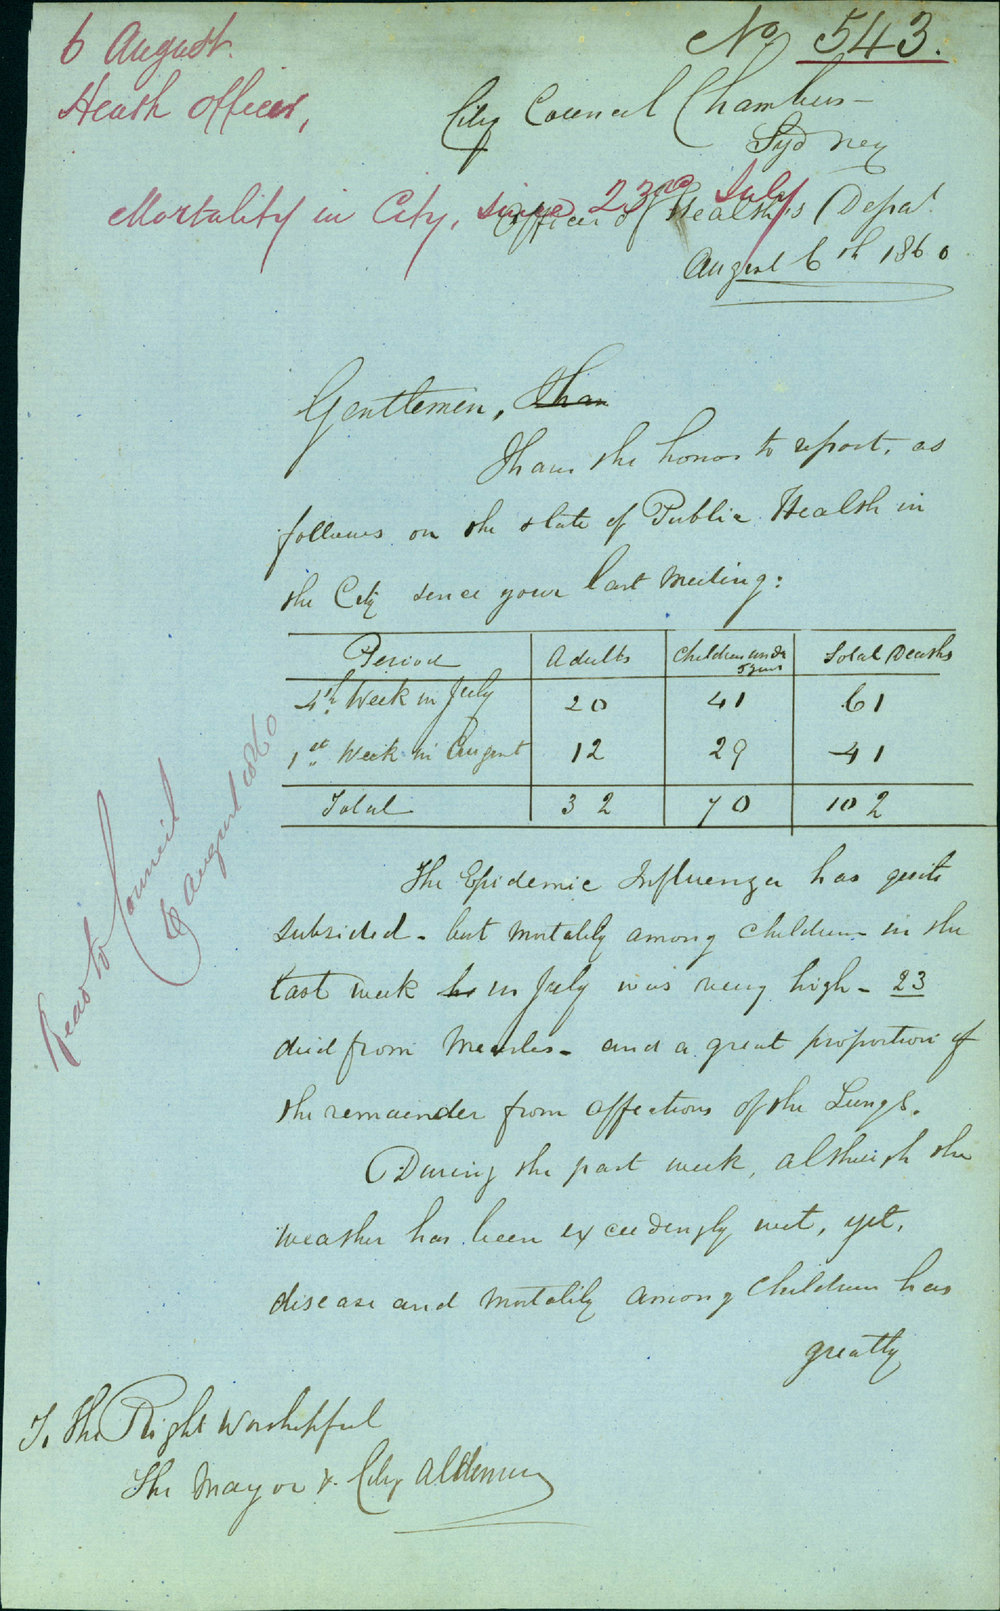 6 August.
Health Officer,
No 543.
City Council Chambers -
Sydney
Mortality in City, since 23rd July
Officer of Health's Depat.
August 6th 1860
Gentlemen, I hav
I have the honor to report, as
follows on the state of Public Health in
the City since your last Meeting:
Period Adults Children under 5 years Total Deaths
4th Week in July 20 41 61
1st Week in August 12 29 41
Total 32 70 102
The Epidemic Influenza has quite
subsided - but mortality among children in the
last week in July was very high - 23
died from Measles - and a great proportion of
the remainder from affections of the Lungs.
During the past week, although the
weather has been exceedingly wet, yet,
disease and mortality among Children has
greatly
To The Right Worshipful
The Mayor & City Aldermen
Read to Council
6 August 1860